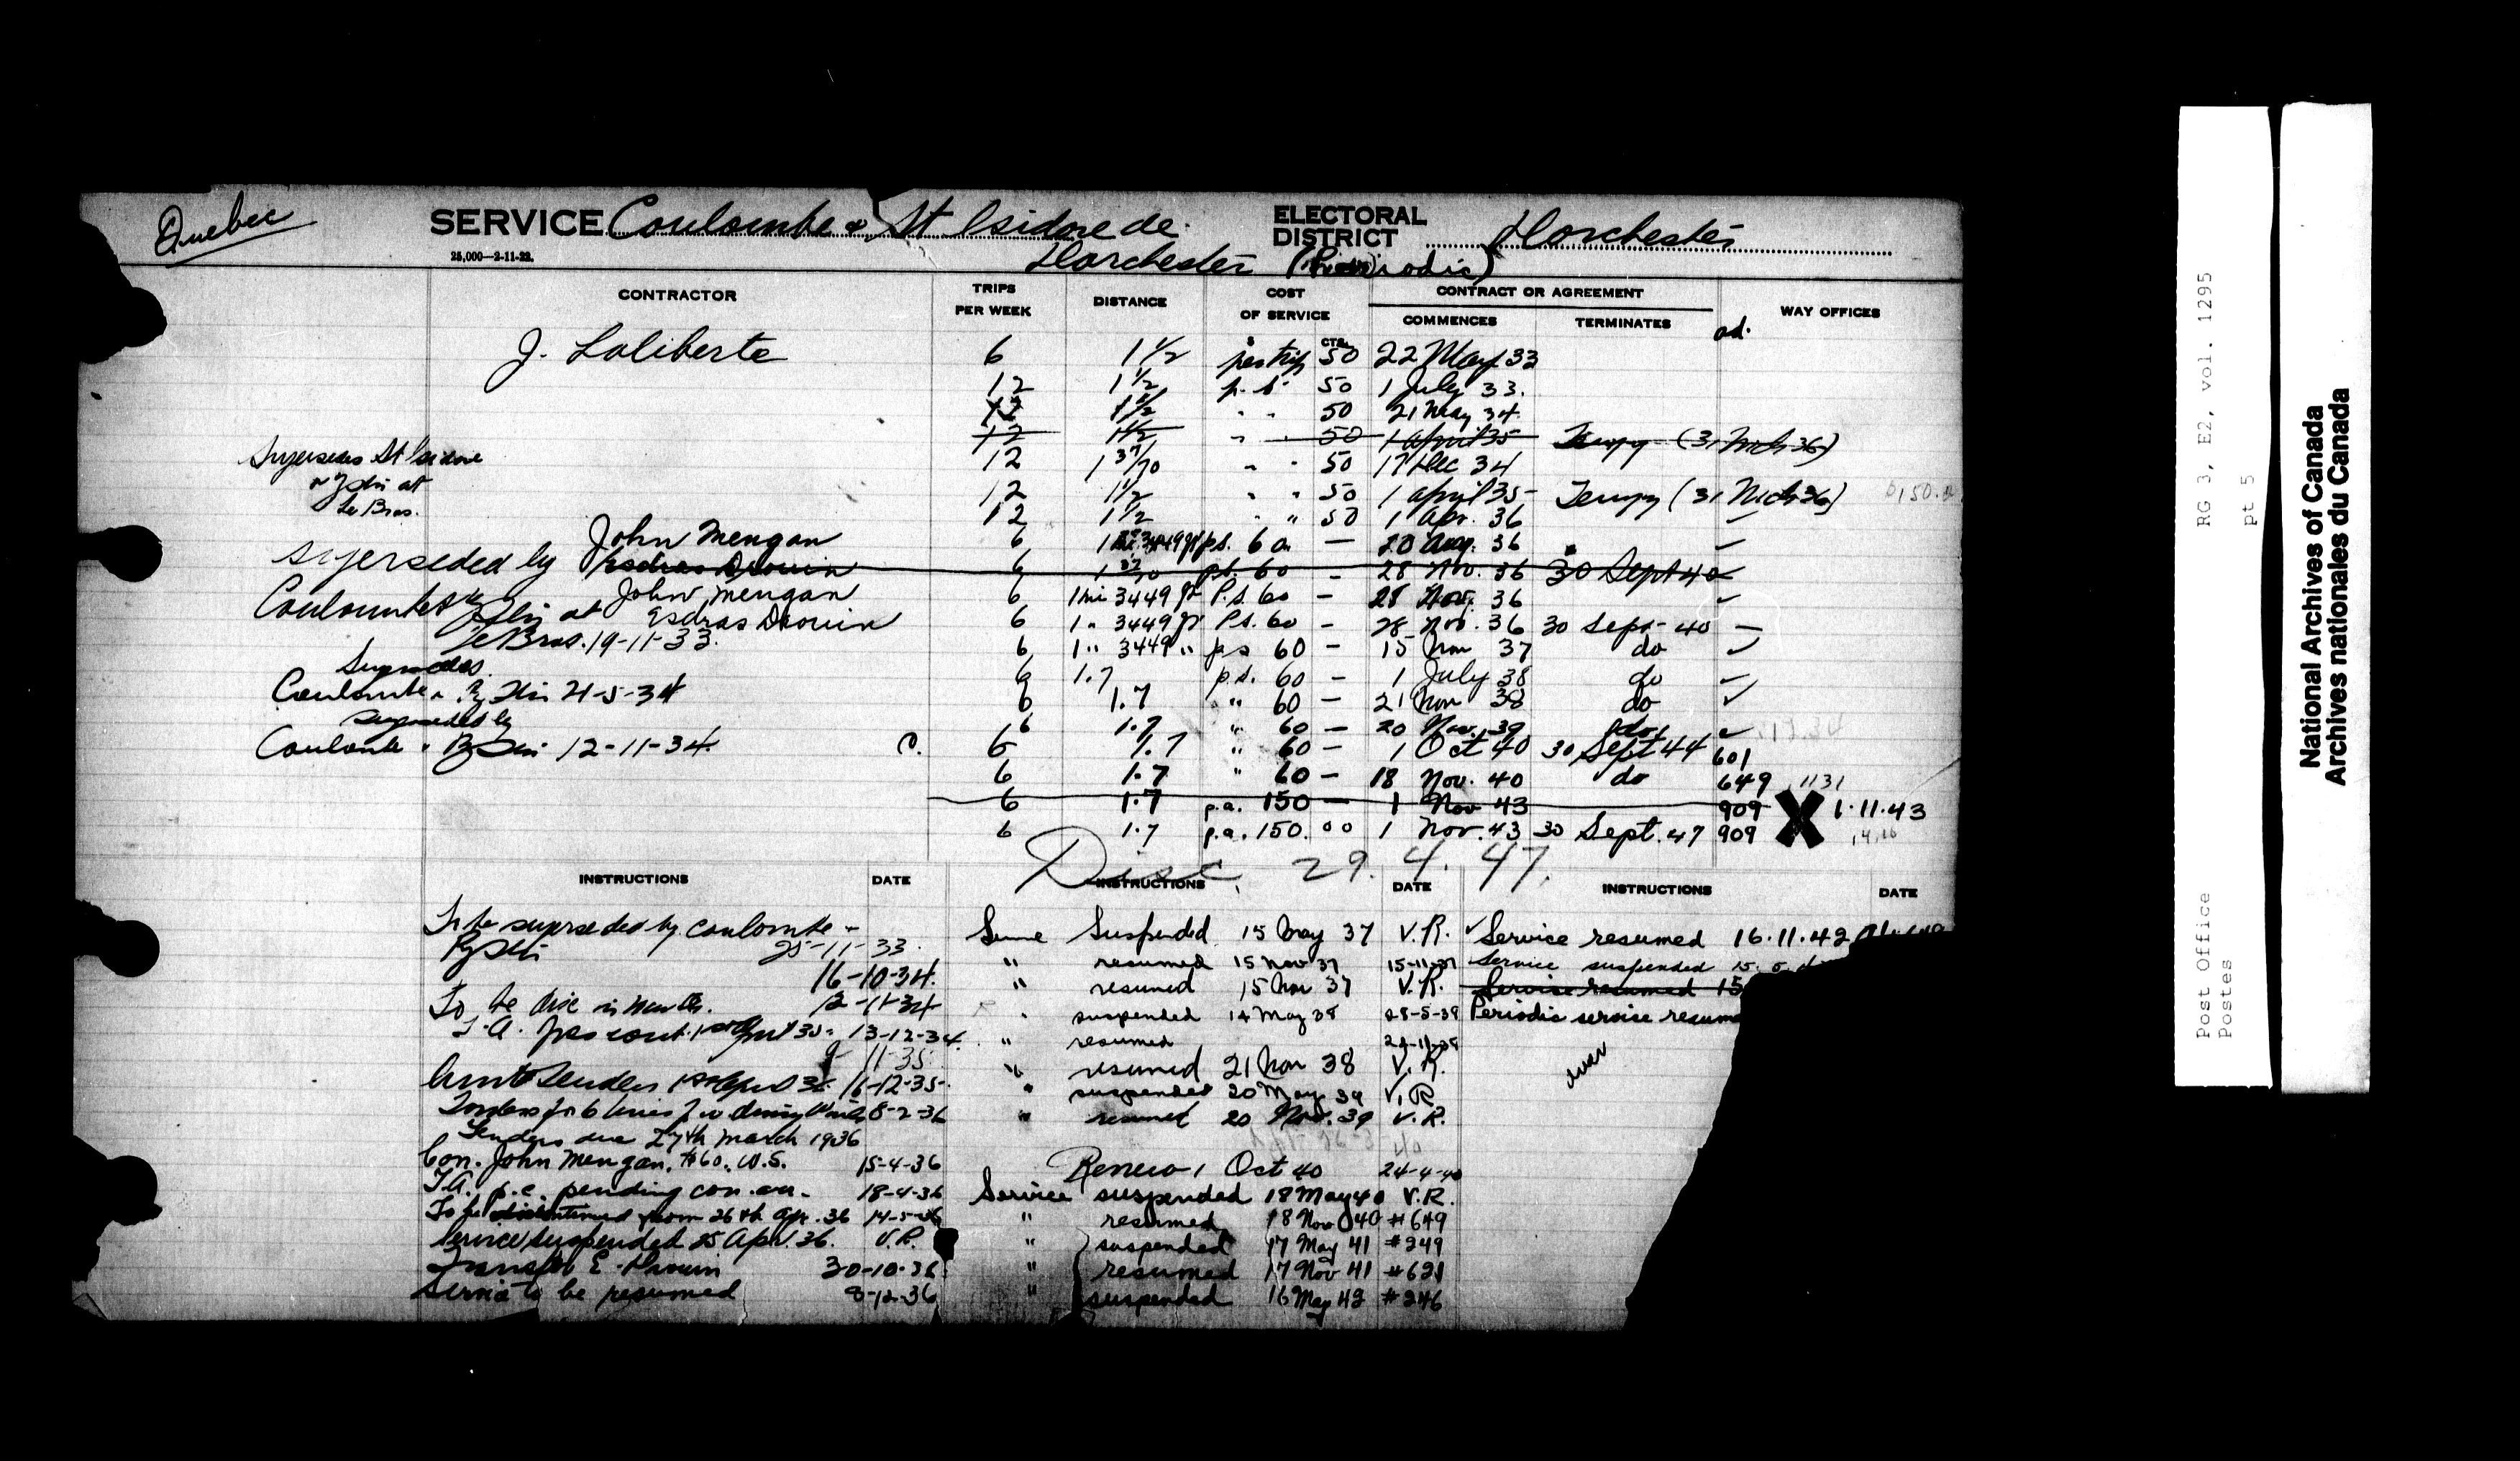 Quebec
SERVICE Coulombe & St Isidore de
Dorchester (Periodic)
ELECTORAL DISTRICT Dorchester
25,000—2-11-22.
CONTRACTOR TRIPS PER WEEK DISTANCE COST OF SERVICE CONTRACT OR AGREEMENT COMMENCES TERMINATES WAY OFFICES
$ CTS.
J. Laliberte 6 1 1/2 per trip 50 22 May 33
12 1 1/2 p.s. 50 1 July 33.
12 1 1/2 " " 50 21 May 34
12 1 1/2 " " 50 1 April 35 Tempy (31 Mch 36)
Supersedes St Isidore
& Ry Stn at
Le Bras.
12 1 37/70 " " 50 17 Dec 34
12 1 1/2 " " 50 1 April 35 Tempy (31 Mch 36)
12 1 1/2 " " 50 1 Apr. 36
John Mengan 6 p.s. 60 — 20 Aug. 36
superseded by Esdras Drouin 6 p.s. 60 — 28 Nov. 36 30 Sept 40
John Mengan 6 1 mi 3449 ft P.s. 60 — 28 Nov. 36
Coulombe & Ry Stn at
Le Bras. 19-11-33.
Esdras Drouin 6 1 " 3449 ft P.s. 60 — 28 Nov. 36 30 Sept- 40 —
6 1 " 3449 " p.s 60 — 15 Nov 37 do
Supersedes
Coulombe & Ry Stn 21-5-34
6 1.7 p.s. 60 — 1 July 38 do
6 1.7 " 60 — 21 Nov 38 do
superseded by
Coulombe & Ry Stn 12-11-34.
6 1.7 " 60 — 20 Nov. 39 do
C. 6 1.7 " 60 — 1 Oct 40 30 Sept 44 601
6 1.7 " 60 — 18 Nov. 40 do 649 1131
6 1.7 p.a. 150 — 1 Nov 43 909 X 1.11.43
6 1.7 p.a. 150.00 1 Nov. 43 30 Sept. 47 909
Disc. 29.4.47.
INSTRUCTIONS DATE INSTRUCTIONS DATE INSTRUCTIONS DATE
To be superseded by Coulombe &
Ry Stn 25-11-33.
16-10-34.
To be disc in 12-11-34
13-12-34.
9-11-35.
16-12-35.
8-2-36
Tenders due 27th March 1936
Con. John Mengan, $60. W.S. 15-4-36
T.A. p.c. pending con. 18-4-36
To be discontinued from 26th Apr. 36 14-5-36
Service suspended 25 Apr. 36. V.R.
Transfer E. Drouin 30-10-36
Service to be resumed 8-12-36
Service Suspended 15 May 37 V.R.
" resumed 15 Nov 37 15-11-37
" resumed 15 Nov 37 V.R.
" suspended 14 May 38
" resumed
" resumed 21 Nov 38 V.R.
" suspended 20 May 39 V.R
" resumed 20 Nov. 39 V.R.
Renew 1 Oct 40 24-4-40
Service suspended 18 May 40 V.R.
" resumed 18 Nov 40 #649
" suspended 17 May 41 #249
" resumed 17 Nov 41 #621
" suspended 16 May 42 #246
Service resumed 16.11.42
Service suspended 15.
Service resumed 15
Periodic service resum
over
RG 3, E2, vol. 1295
pt 5
Post Office
Postes
National Archives of Canada
Archives nationales du Canada